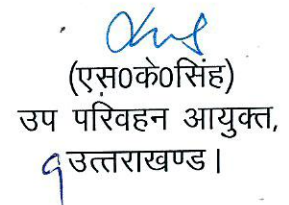 (एस०के०सिंह)
उप परिवहन आयुक्त,
उत्तराखण्ड।